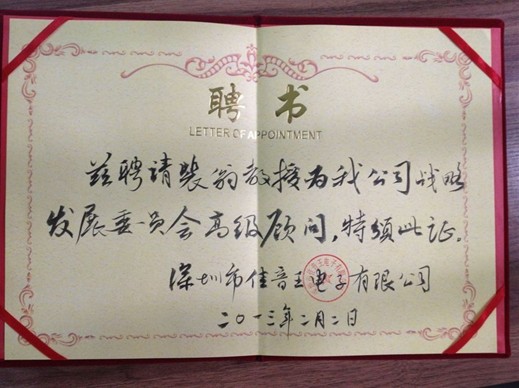 聘书
LETTER OF APPOINTMENT
兹聘请裴翁教授为我公司战略
发展委员会高级顾问,特颁此证。
深圳市佳音王电子有限公司
二〇一三年二月二日